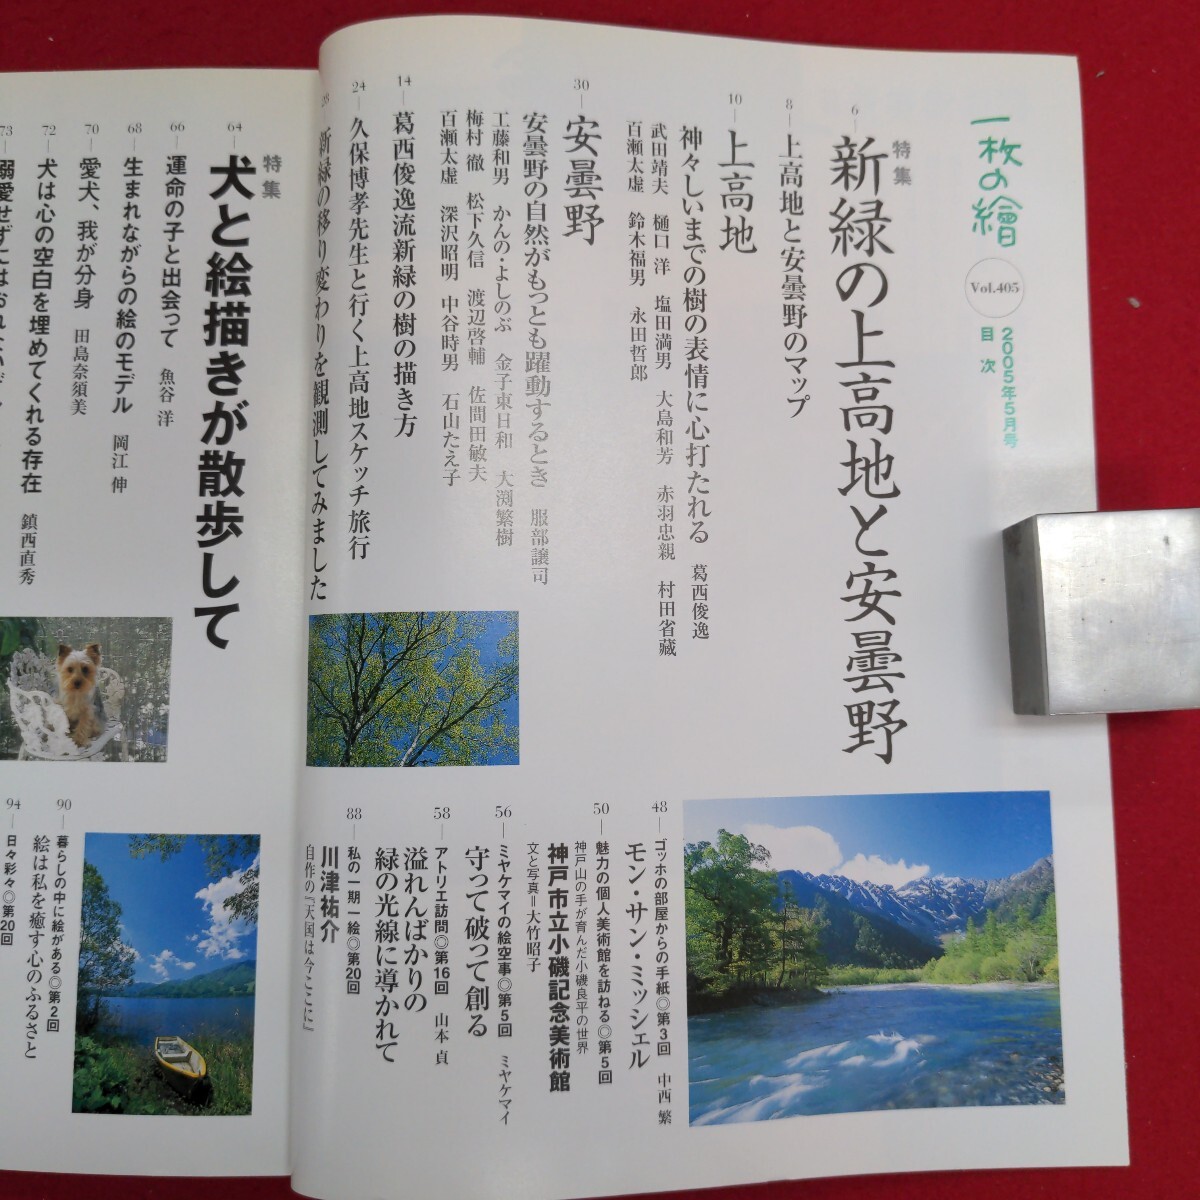 一枚の繪
Vol.405
2005年5月号
目次
特集
6
新緑の上高地と安曇野
8
上高地と安曇野のマップ
10
上高地
神々しいまでの樹の表情に心打たれる 葛西俊逸
武田靖夫 樋口洋 塩田満男 大島和芳 赤羽忠親 村田省蔵
百瀬太虚 鈴木福男 永田哲郎
30
安曇野
安曇野の自然がもっとも躍動するとき 服部譲司
工藤和男 かんの・よしのぶ 金子東日和 大渕繁樹
梅村徹 松下久信 渡辺啓輔 佐間田敏夫
百瀬太虚 深沢昭明 中谷時男 石山たえ子
14
葛西俊逸流新緑の樹の描き方
24
久保博孝先生と行く上高地スケッチ旅行
28
新緑の移り変わりを観測してみました
48
ゴッホの部屋からの手紙◎第3回 中西繁
モン・サン・ミッシェル
50
魅力の個人美術館を訪ねる◎第5回
神戸山の手が育んだ小磯良平の世界
神戸市立小磯記念美術館
文と写真＝大竹昭子
56
ミヤケマイの絵空事◎第5回 ミヤケマイ
守って破って創る
58
アトリエ訪問◎第16回 山本貞
溢れんばかりの
緑の光線に導かれて
88
私の一期一絵◎第20回
川津祐介
自作の『天国は今ここに』
特集
64
犬と絵描きが散歩して
66
運命の子と出会って 魚谷洋
68
生まれながらの絵のモデル 岡江伸
70
愛犬、我が分身 田島奈須美
72
犬は心の空白を埋めてくれる存在 鎮西直秀
73
溺愛せずにはおれない
90
暮らしの中に絵がある◎第2回
絵は私を癒す心のふるさと
94
日々彩々◎第20回